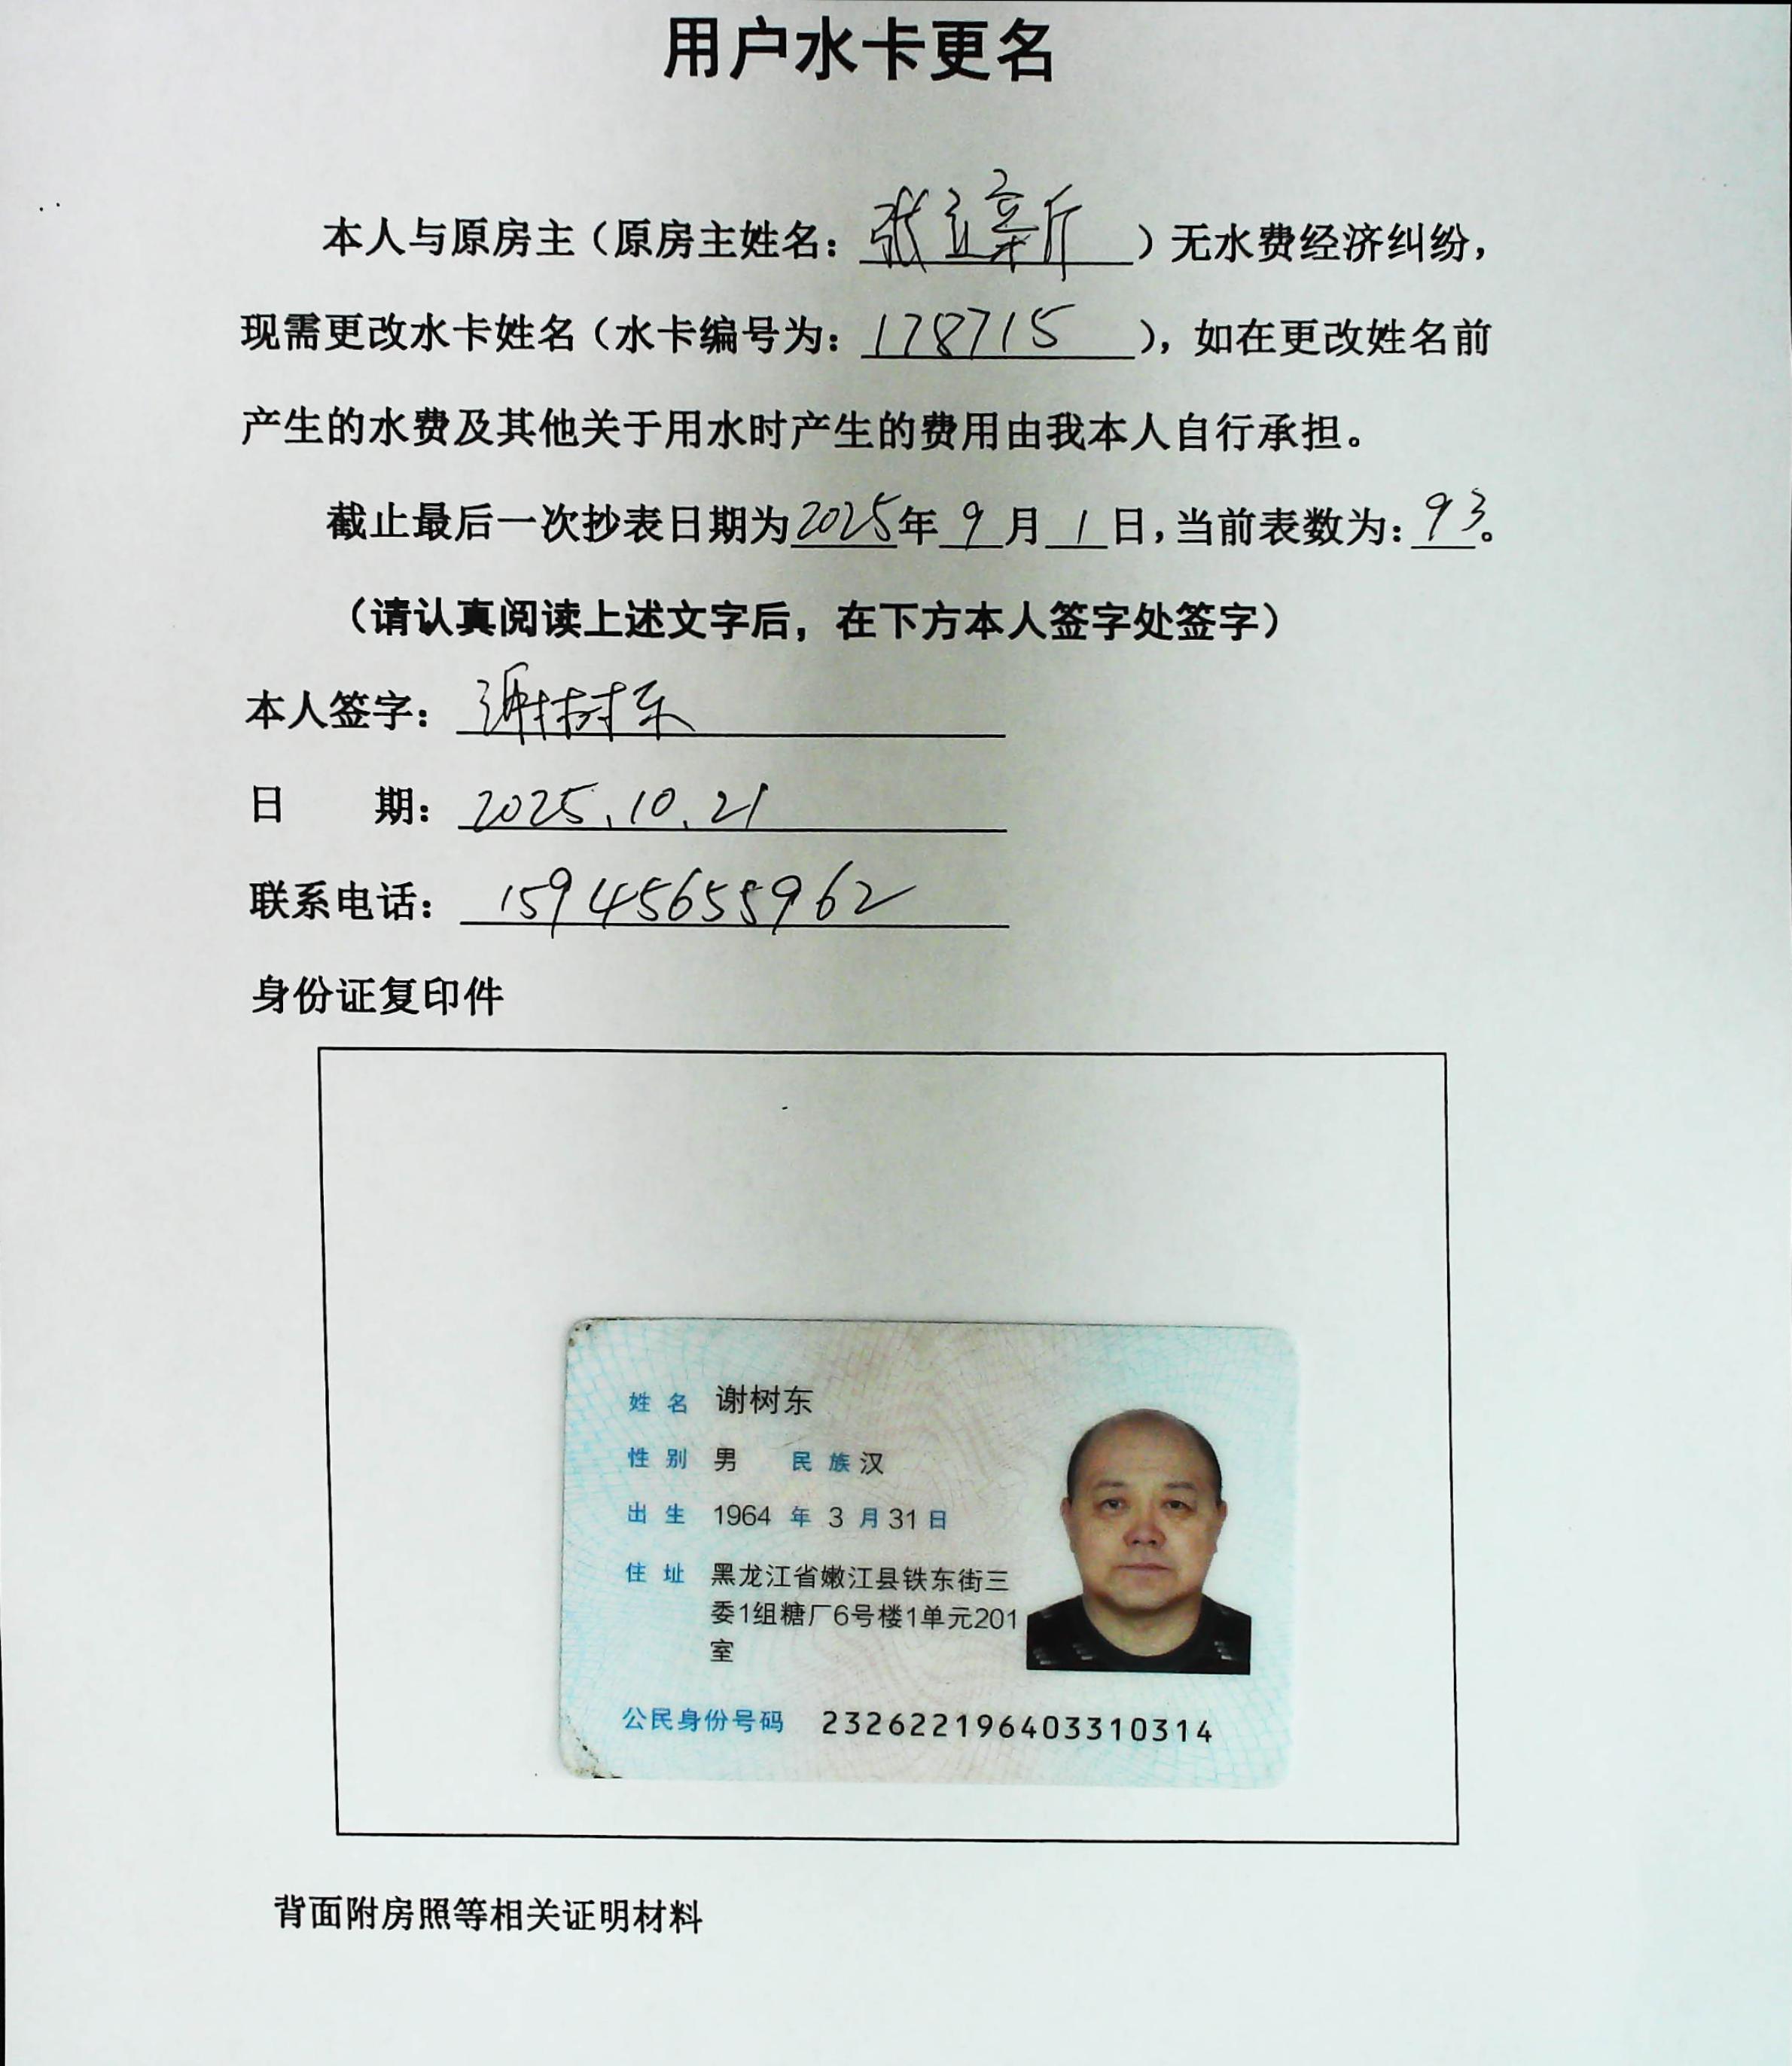 用户水卡更名
本人与原房主（原房主姓名：张立新）无水费经济纠纷，
现需更改水卡姓名（水卡编号为：178715），如在更改姓名前
产生的水费及其他关于用水时产生的费用由我本人自行承担。
截止最后一次抄表日期为2025年9月1日，当前表数为：93。
（请认真阅读上述文字后，在下方本人签字处签字）
本人签字：谢树东
日 期：2025.10.21
联系电话：15945655962
身份证复印件
姓名 谢树东
性别 男 民族 汉
出生 1964 年 3 月 31 日
住址 黑龙江省嫩江县铁东街三
委1组糖厂6号楼1单元201
室
公民身份号码 232622196403310314
背面附房照等相关证明材料